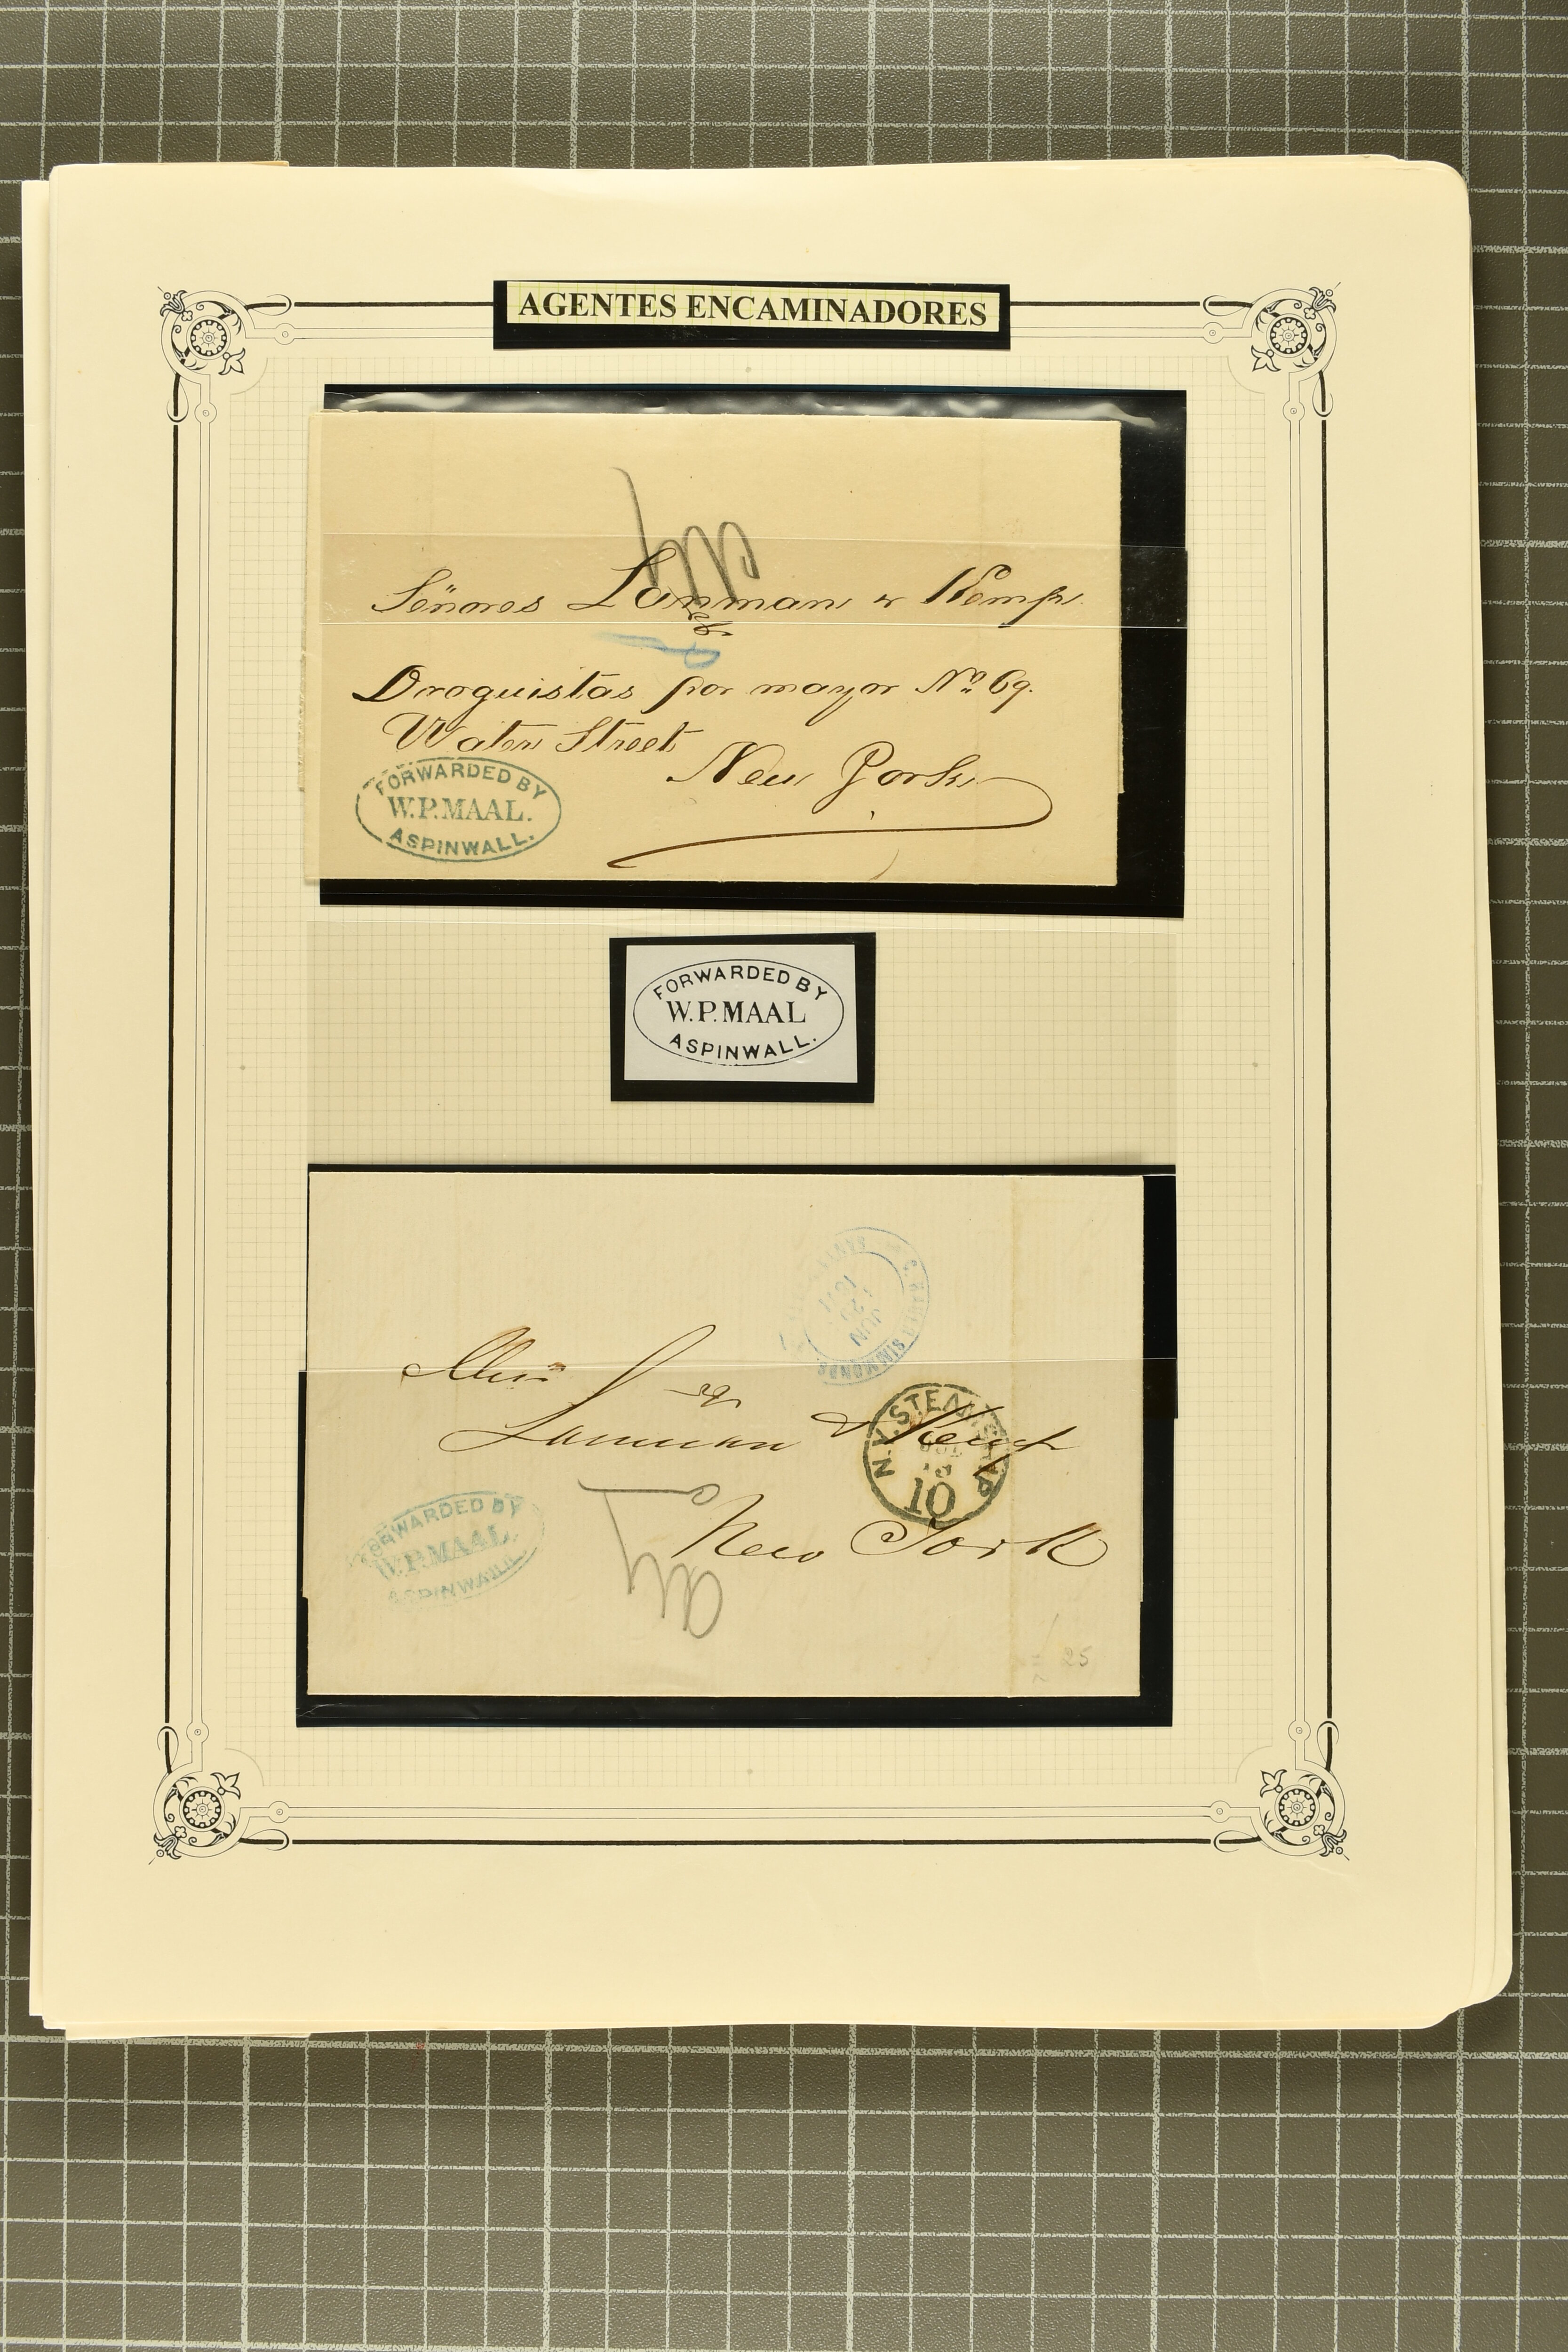 AGENTES ENCAMINADORES
Señores Lanman & Kemp
Droguistas por mayor Nº 69.
Water Street
New York
FORWARDED BY
W.P. MAAL.
ASPINWALL.
FORWARDED BY
W.P. MAAL
ASPINWALL.
SIMMONDS
JUN
Lanman & Kemp
N.Y. STEAMSHIP
10
New York
FORWARDED BY
W.P. MAAL.
ASPINWALL.
25